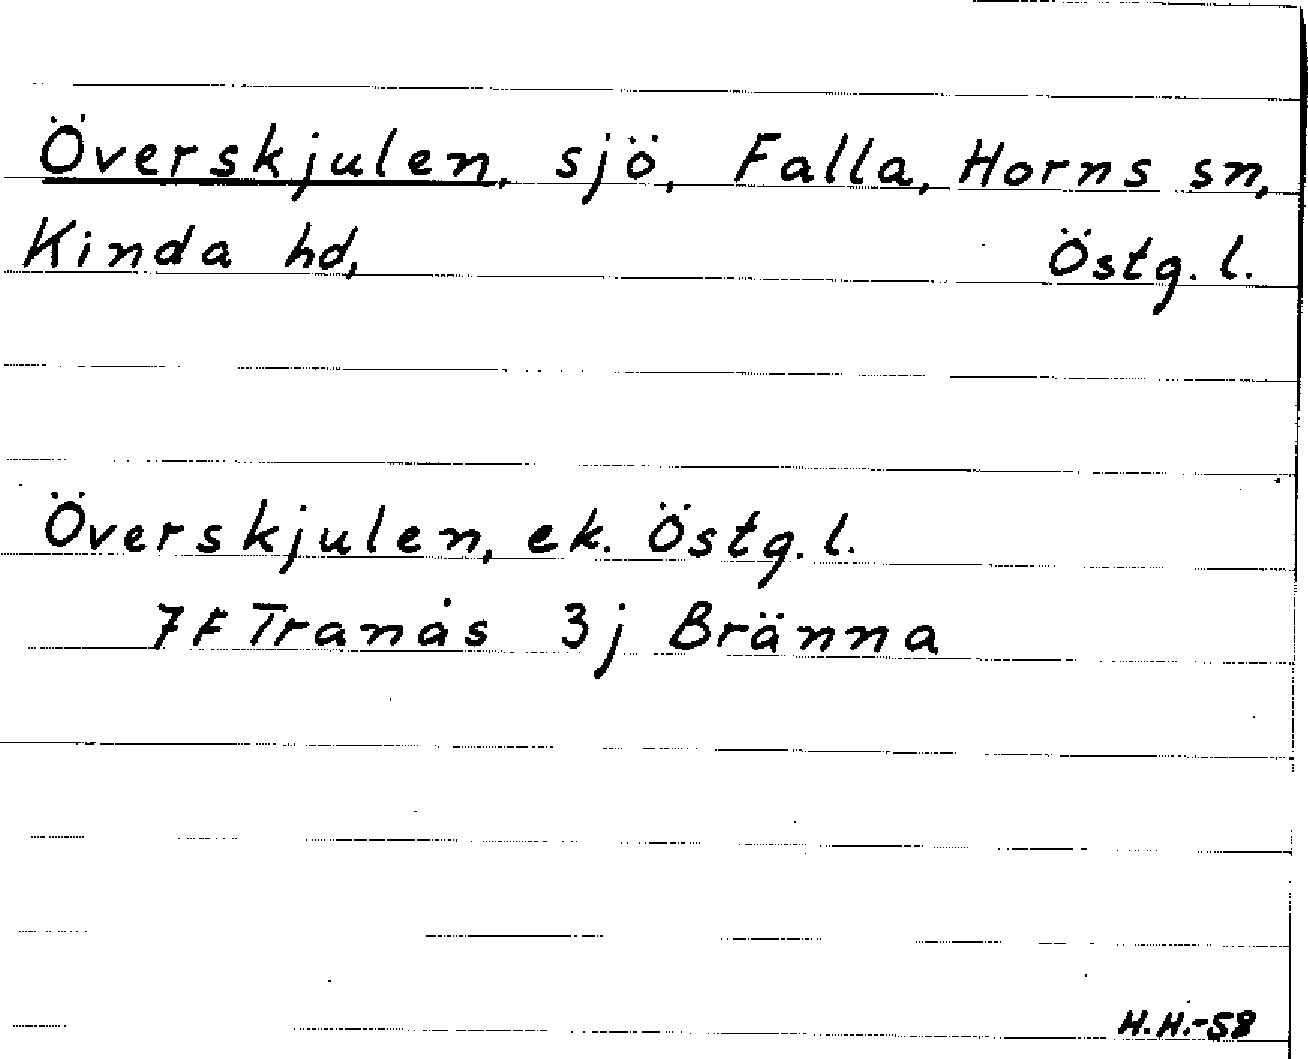 Överskjulen, sjö, Falla, Horns sn,
Kinda hd, Östg. l.
Överskjulen, ek. Östg. l.
7F Tranås 3j Bränna
H.H.-58